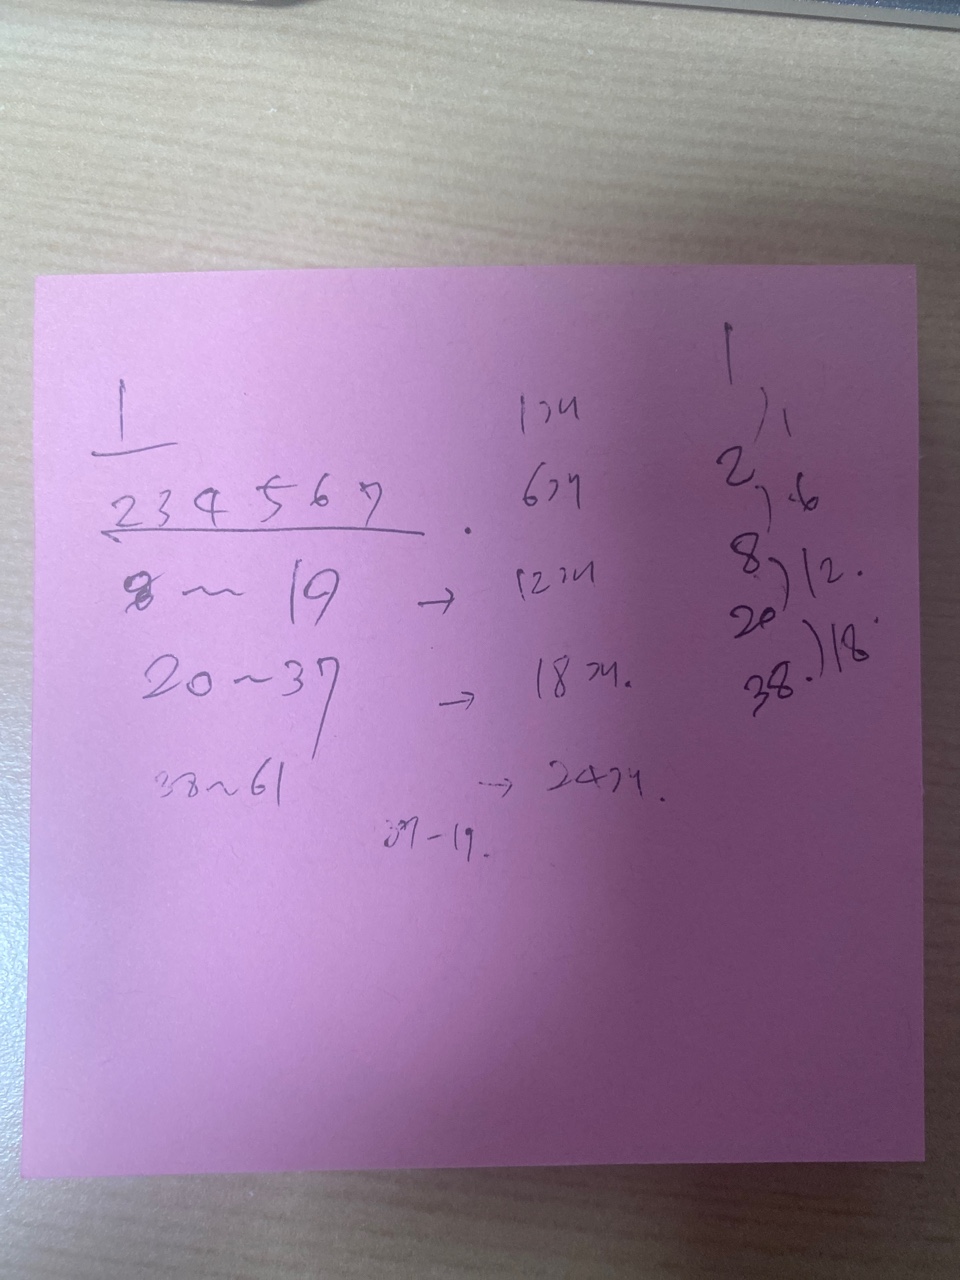 1
1개
2 3 4 5 6 7 .
6개
8 ~ 19 → 12개
20 ~ 37 → 18개.
38 ~ 61 → 24개.
37 - 19.
1
) 1
2
) 6
8
) 12.
20
) 18
38.